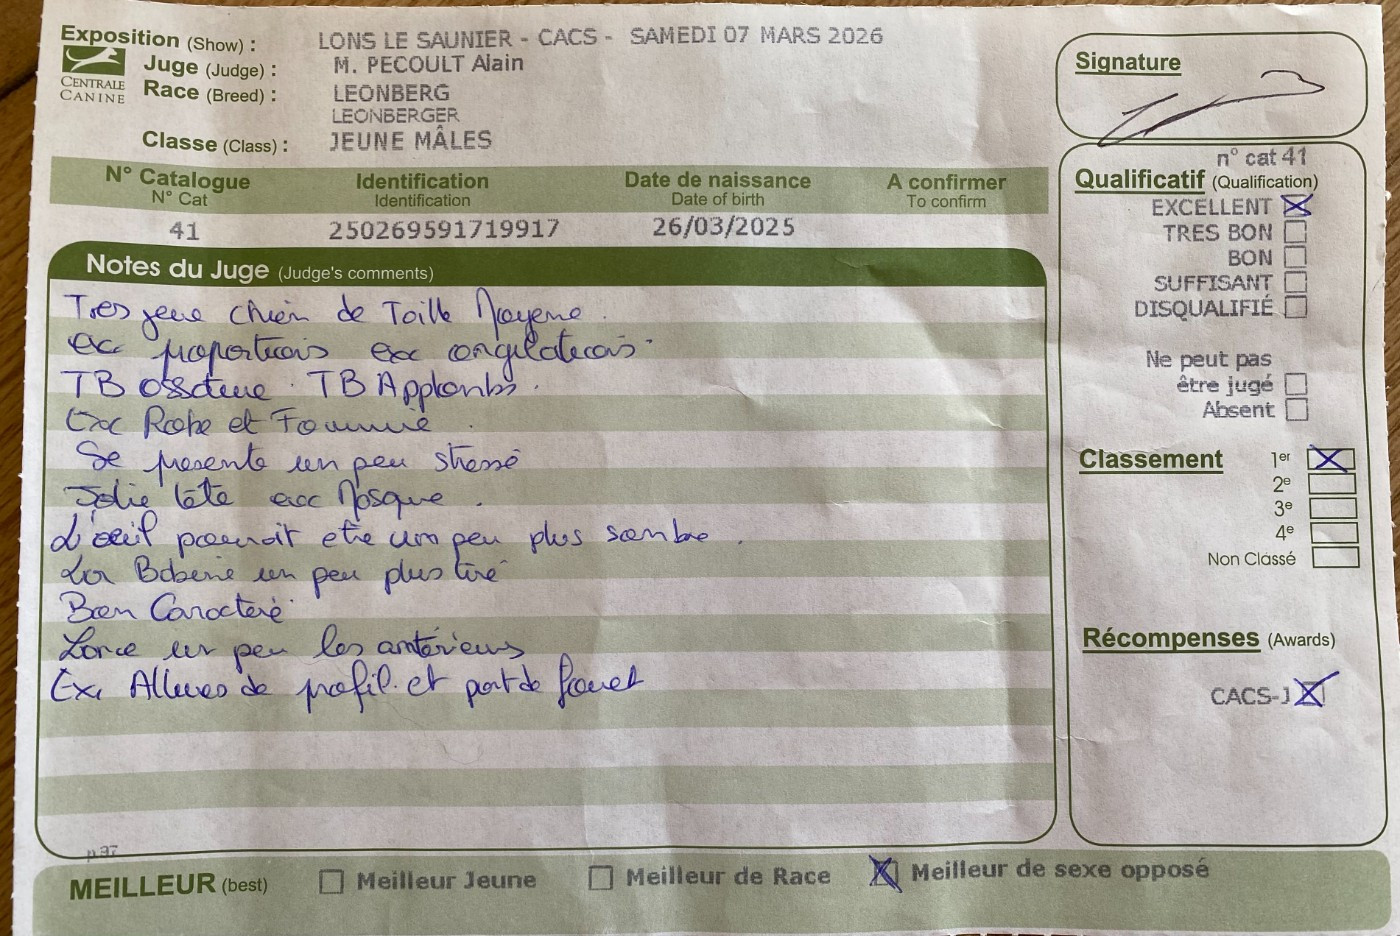 Exposition (Show) : LONS LE SAUNIER - CACS - SAMEDI 07 MARS 2026
CENTRALE CANINE
Juge (Judge) : M. PECOULT Alain
Race (Breed) : LEONBERG
LEONBERGER
Classe (Class) : JEUNE MÂLES
Signature
N° Catalogue Identification Date de naissance A confirmer
N° Cat Identification Date of birth To confirm
41 250269591719917 26/03/2025
Notes du Juge (Judge's comments)
Tres jeune chien de Taille Moyenne.
exc proportions exc angulations.
TB ossature. TB Applombs.
Exc Robe et Fourrure.
Se presente un peu stressé
Jolie tête avec Masque.
L'oeil pourrait etre un peu plus sombre.
La Baberie un peu plus tiré
Bon Caractere
Lance un peu les antérieurs
Ex. Allures de profil. et port de fouet
n° cat 41
Qualificatif (Qualification)
EXCELLENT
TRES BON
BON
SUFFISANT
DISQUALIFIÉ
Ne peut pas
être jugé
Absent
Classement 1er
2e
3e
4e
Non Classé
Récompenses (Awards)
CACS-J
p 37
MEILLEUR (best) Meilleur Jeune Meilleur de Race Meilleur de sexe opposé